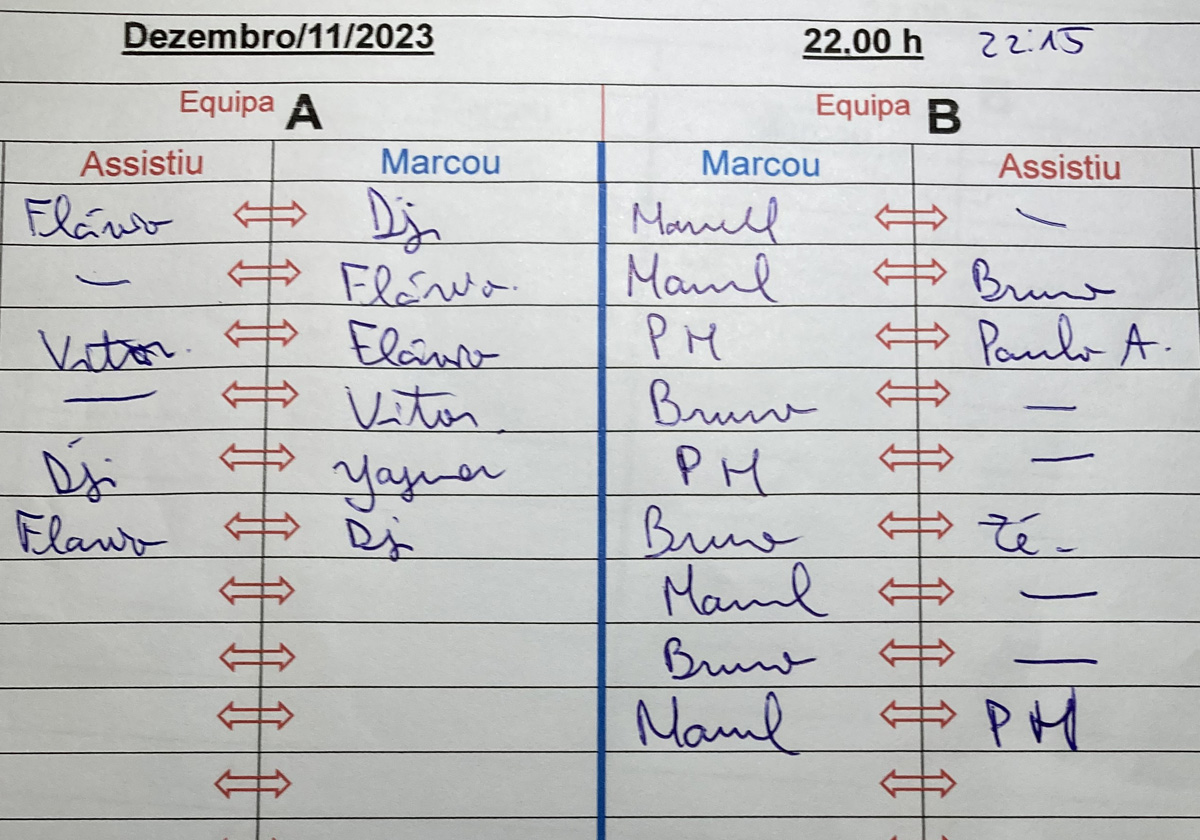 Dezembro/11/2023 22.00 h 22:15
Equipa A Equipa B
Assistiu Marcou Marcou Assistiu
Flávio Dj Manuel —
— Flávio. Manuel Bruno
Vitor. Flávio PM Paulo A.
— Vitor. Bruno —
Dji Yagner PM —
Flavio Dj Bruno Zé -
Manuel —
Bruno —
Manuel PM